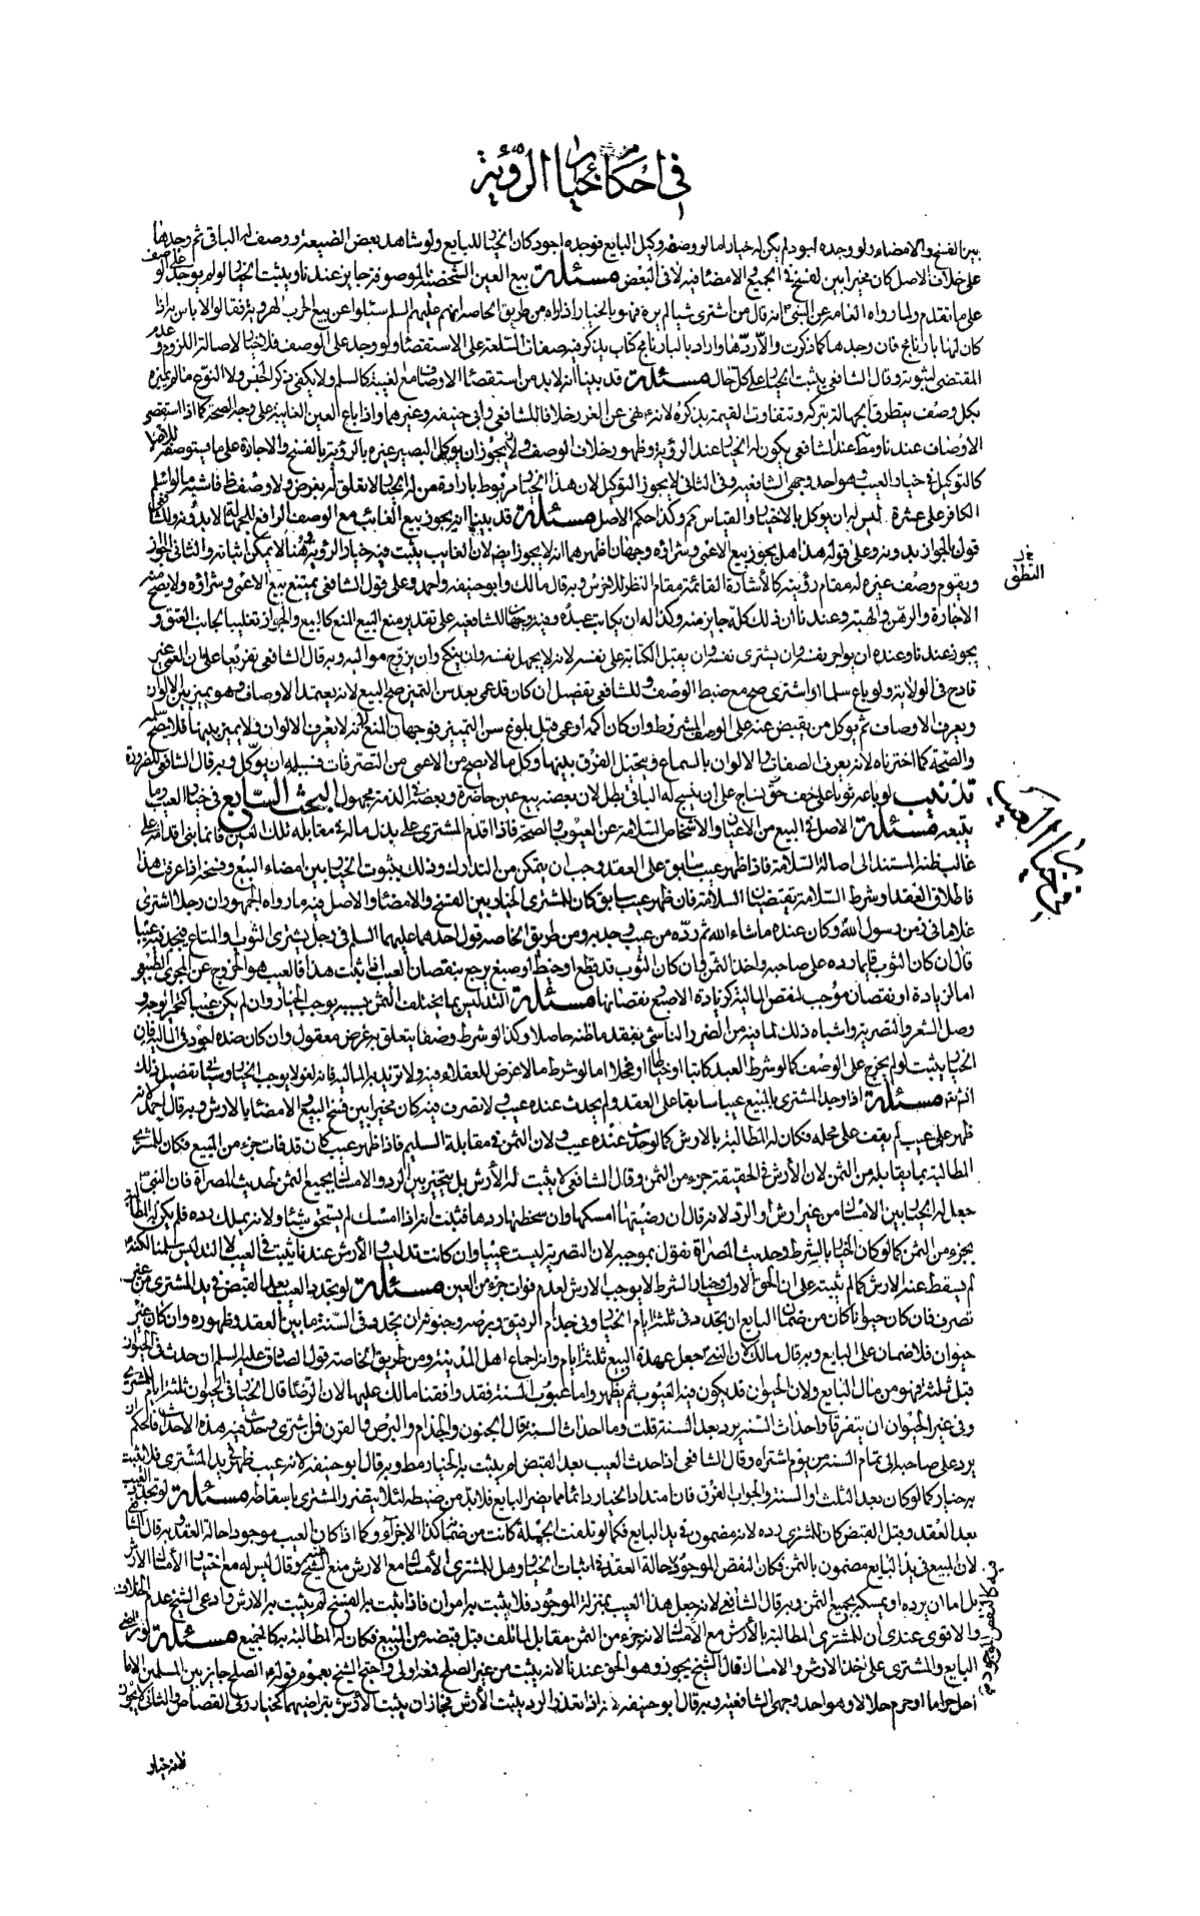 في احكام خيار الرؤية
بين الفسخ والامضاء ولو وجده اجود لم يكن له خيار اما لو وصفه وكيل البايع فوجده اجود كان الخيار للبايع ولو شاهد بعض الضيعة ووصف له الباقي ثم وجدها
على خلاف الاصل كان مخيرا بين الفسخ في الجميع والامضاء فيه لا في البعض مسئلة بيع العين الشخصية الموصوفة جايز عندنا ويثبت الخيار لو لم يوجد على الوصف
على ما تقدم ولما رواه العامة عن النبي انه قال من اشترى شيئا لم يره فهو بالخيار اذا راه من طريق الخاصة انهم عليهم السلم سئلوا عن بيع الجرب الهروية فقالوا لا باس به اذا
كان لها بارنامج فان وجدها كما ذكرت والا ردها واراد بالبارنامج كتاب يذكر فيه صفات السلعة على الاستقصاء ولو وجد على الوصف فلا خيار لاصالة اللزوم وعدم
المقتضى لثبوته وقال الشافعي يثبت الخيار على كل حال مسئلة قد بينا انه لابد من استقصاء الاوصاف مع الغيبة كالسلم ولا يكفي ذكر الجنس ولا النوع ما لم يميزه
بكل وصف يتطرق الجهالة بتركه وتتفاوت القيمة بذكره لانه نهى عن الغرر خلافا للشافعي وابي حنيفة وغيرهما واذا باع العين الغايبة على وجه الصحة كما اذا استقصى
الاوصاف عندنا ومط عند الشافعي يكون له الخيار عند الرؤية وظهور خلاف الوصف ولا يجوز ان يوكل البصير غيره بالرؤية بالفسخ والاجازة على ما يستوصفه للاصل
كالتوكيل في خيار العيب وهو احد وجهي الشافعية وفي الثاني لا يجوز التوكيل لان هذا الخيار مربوط بارادة من له الخيار لا تعلق له بغرض ولا وصف ظ فاشبه ما لو اسلم
الكافر على عشرة ليس له ان يوكل بالاختيار والقياس ثم وكذا حكم الاصل مسئلة قد بينا انه يجوز بيع الغائب مع الوصف الرافع للجهالة ولا بد منه وللشافعي
قول بالجواز بدونه وعلى قوله هذا هل يجوز بيع الاعمى وشراؤه وجهان اظهرهما انه لا يجوز ايض لان الغايب يثبت فيه خيار الرؤية وهنا لا يمكن اثباته والثاني الجواز
ويقوم وصف غيره له مقام رؤيته كالاشارة القائمة مقام النطق للاخرس وبه قال مالك وابو حنيفة واحمد وعلى قول الشافعي يمتنع بيع الاعمى وشراؤه ولا يصح منه
الاجارة والرهن والهبة وعندنا ان ذلك كله جايز منه وكذا له ان يكاتب عبده وفيه وجهان للشافعية على تقدير منع البيع المنع كالبيع والجواز تغليبا لجانب العتق و
يجوز عندنا وعنده ان يواجر نفسه وان يشترى نفسه وان يقبل الكتابة على نفسه لانه لا يجهل نفسه وان ينكح وان يزوج مواليه وبه قال الشافعي تفريعا على ان العمى غير
قادح في الولاية ولو باع سلما او اشترى صح مع ضبط الوصف وللشافعي تفصيل ان كان قد عمى بعد سن التميز صح البيع لانه يعتمد الاوصاف وهو يميز بين الالوان
ويعرف الاوصاف ثم يوكل من يقبض عنه على الوصف المشروط وان كان اكمه او عمى قبل بلوغ سن التمييز فوجهان المنع لانه لا يعرف الالوان ولا يميز بينها فلا يصح سلمه
والصحة كما اخترناه لانه يعرف الصفات والالوان بالسماع ويتخيل الفرق بينها وكل ما لا يصح من الاعمى من التصرفات فسبيله ان يوكل وبه قال الشافعي للضرورة
تذنيب لو باعه ثوبا على خف حق نساج على ان ينسج له الباقي بطل لان بعضه بيع عين حاضرة وبعضه في الذمة مجهول البحث السابع في خيار العيب وما
يتبعه مسئلة الاصل في البيع من الاعيان والاشخاص السلامة عن العيوب والصحة فاذا اقدم المشترى على بذل ماله في مقابلة تلك العين فانما بنى اقدامه على
غالب ظنه المستند الى اصالة السلامة فاذا ظهر عيب سابق على العقد وجب ان يتمكن من التدارك وذلك بثبوت الخيار بين امضاء البيع وفسخه اذا عرفت هذا
فاطلاق العقد او شرط السلامة يقتضيان السلامة فان ظهر عيب سابق كان للمشترى الخيار بين الفسخ والامضاء والاصل فيه ما رواه الجمهور ان رجلا اشترى
غلاما في زمن رسول الله وكان عنده ما شاء الله ثم رده من عيب وجد به ومن طريق الخاصة قول احدهما عليهما السلم في رجل يشترى الثوب او المتاع فيجد فيه عيبا
قال ان كان الثوب قايما رده على صاحبه واخذ الثمن وان كان الثوب قد قطع او خيط او صبغ يرجع بنقصان العيب اذا ثبت هذا فالعيب هو الخروج عن المجرى الطبيعي
اما لزيادة او نقصان موجب لنقص المالية كزيادة الاصبع ونقصانها مسئلة التدليس بما يختلف الثمن بسببه يوجب الخيار وان لم يكن عيبا كتحمير الوجه و
وصل الشعر والتصرية واشباه ذلك لما فيه من الضرر الناشي بفقد ما ظنه حاصلا وكذا لو شرط وصفا يتعلق به غرض معقول وان كان ضده اجود في المالية فان
الخيار يثبت لو لم يخرج على الوصف كما لو شرط العبد كاتبا او خياطا او فحلا اما لو شرط ما لا غرض للعقلاء فيه ولا تزيد به المالية فانه لغو لا يوجب الخيار وسياتي تفصيل ذلك
انشاء الله مسئلة اذا وجد المشترى بالمبيع عيبا سابقا على العقد ولم يحدث عنده عيب ولا تصرف فيه كان مخيرا بين فسخ البيع والامضاء بالارش وبه قال احمد لانه
ظهر على عيب لم يقف على محله فكان له المطالبة بالارش كما لو حدث عنده عيب ولان الثمن في مقابلة السليم فاذا ظهر عيب كان قد فات جزء من المبيع فكان للمشترى
المطالبة بما يقابله من الثمن لان الارش في الحقيقة جزء من الثمن وقال الشافعي لا يثبت له الارش بل يتخير بين الرد والامساك بجميع الثمن لحديث المصراة فان النبي
جعل له الخيار بين الامساك من غير ارش او الرد لانه قال ان رضيتها امسكها وان سخطتها ردها فثبت انه اذا امسك لم يستحق شيئا ولانه يملك رده فلم يكن له المطالبة
بجزء من الثمن كما لو كان الخيار بالشرط وحديث المصراة نقول بموجبه لان التصرية ليست عيبا وان كانت تدليسا والارش عندنا يثبت في العيب لا التدليس سلمنا لكنه
لم يسقط عنه الارش كما لم يثبته على ان الحق الاول وخيار الشرط لا يوجب الارش لعدم فوات جزء من العين مسئلة لو تجدد العيب بعد القبض في يد المشترى من غير
تصرف فان كان حيوانا كان من ضمان البايع ان تجدد في ثلثة ايام الخيار وفي جذام الرقيق وبرصه وجنونه ان تجدد في السنة ما بين العقد وظهوره وان كان غير
حيوان فلا ضمان على البايع وبه قال مالك لان النبي جعل عهدة البيع ثلثة ايام وانه اجماع اهل المدينة ومن طريق الخاصة قول الصادق عليه السلم ان حدث في الحيوان
قبل ثلثة فهو من مال البايع ولان الحيوان قد يكون فيه العيوب ثم يظهر واما عيوب السنة فقد وافقنا مالك عليها لان الرضا قال الخيار في الحيوان ثلثة ايام للمشترى
وفي غير الحيوان ان يتفرقا واحداث السنة يرد بعد السنة قلت وما احداث السنة قال الجنون والجذام والبرص والقرن فمن اشترى وحدث فيه هذه الاحداث فالحكم ان
يرد على صاحبه الى تمام السنة من يوم اشتراه وقال الشافعي اذا حدث العيب بعد القبض لم يثبت به الخيار مط وبه قال ابو حنيفة لانه عيب ظهر في يد المشترى فلا يثبت
به خيار كما لو كان بعد الثلث او السنة والجواب الفرق فان امتداد الخيار دائما مما يضر البايع فلا بد من ضبطه لئلا يتضرر والمشترى باسقاطه مسئلة لو تجدد العيب
بعد العقد وقبل القبض كان للمشترى رده لانه مضمون في يد البايع فكما لو تلفت الجملة كانت من ضمانه كذا الاجزاء وكما اذا كان العيب موجودا حالة العقد وبه قال الشافعي
لان المبيع في يد البايع مضمون بالثمن فكان النقص الموجود حالة العقد في اثبات الخيار وهل للمشترى الامساك مع الارش منع الشيخ وقال ليس له مع اختيار الامساك الارش
بل اما ان يرده او يمسكه بجميع الثمن وبه قال الشافعي لانه جعل هذا العيب بمنزلة الموجود فلا يثبت به امران فاذا ثبت به الفسخ لم يثبت به الارش وادعى الشيخ عدم الخلاف
والاقوى عندي ان للمشترى المطالبة بالارش مع الامساك لانه جزء من الثمن مقابل لما تلف قبل قبضه من المبيع فكان له المطالبة به كالجميع مسئلة لو تراضى
البايع والمشترى على اخذ الارش والامساك قال الشيخ يجوز وهو الحق عندنا لانه يثبت من غير الصلح فمعه اولى واحتج الشيخ بعموم قوله الصلح جايز بين المسلمين الا ما
احل حراما او حرم حلالا وهو احد وجهي الشافعية وبه قال ابو حنيفة لانه اذا تعذر الرد يثبت الارش فجاز ان يثبت الارش بتراضيهما كخيار ذوي القصاص والثاني لا يجوز
لانه خيار
النطق
في خيار العيب
فيه كالنقص الموجود